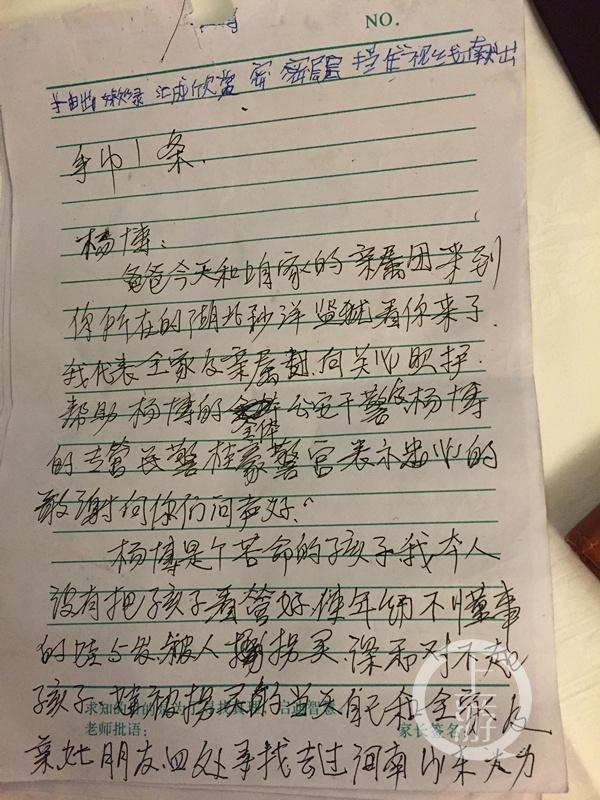 NO.
汇成欣赏 密 密层层 挡住视线
手巾1条.
杨博:
爸爸今天和咱家的亲属团来到
你所在的湖北沙洋监狱看你来了.
我代表全家及亲属团.向关心照护.
帮助杨博的全体公安干警及杨博
的专管民警桂豪警官表示忠心的
敬谢向你们问声好.
杨博是个苦命的孩子.我本人
没有把孩子看管好.使年幼不懂事
的娃 被人 拐买.深 对不起
孩子. 被拐买的当天自己和全家及
老师批语: 家长签名
亲处朋友.四处寻找去过河南山东
上游